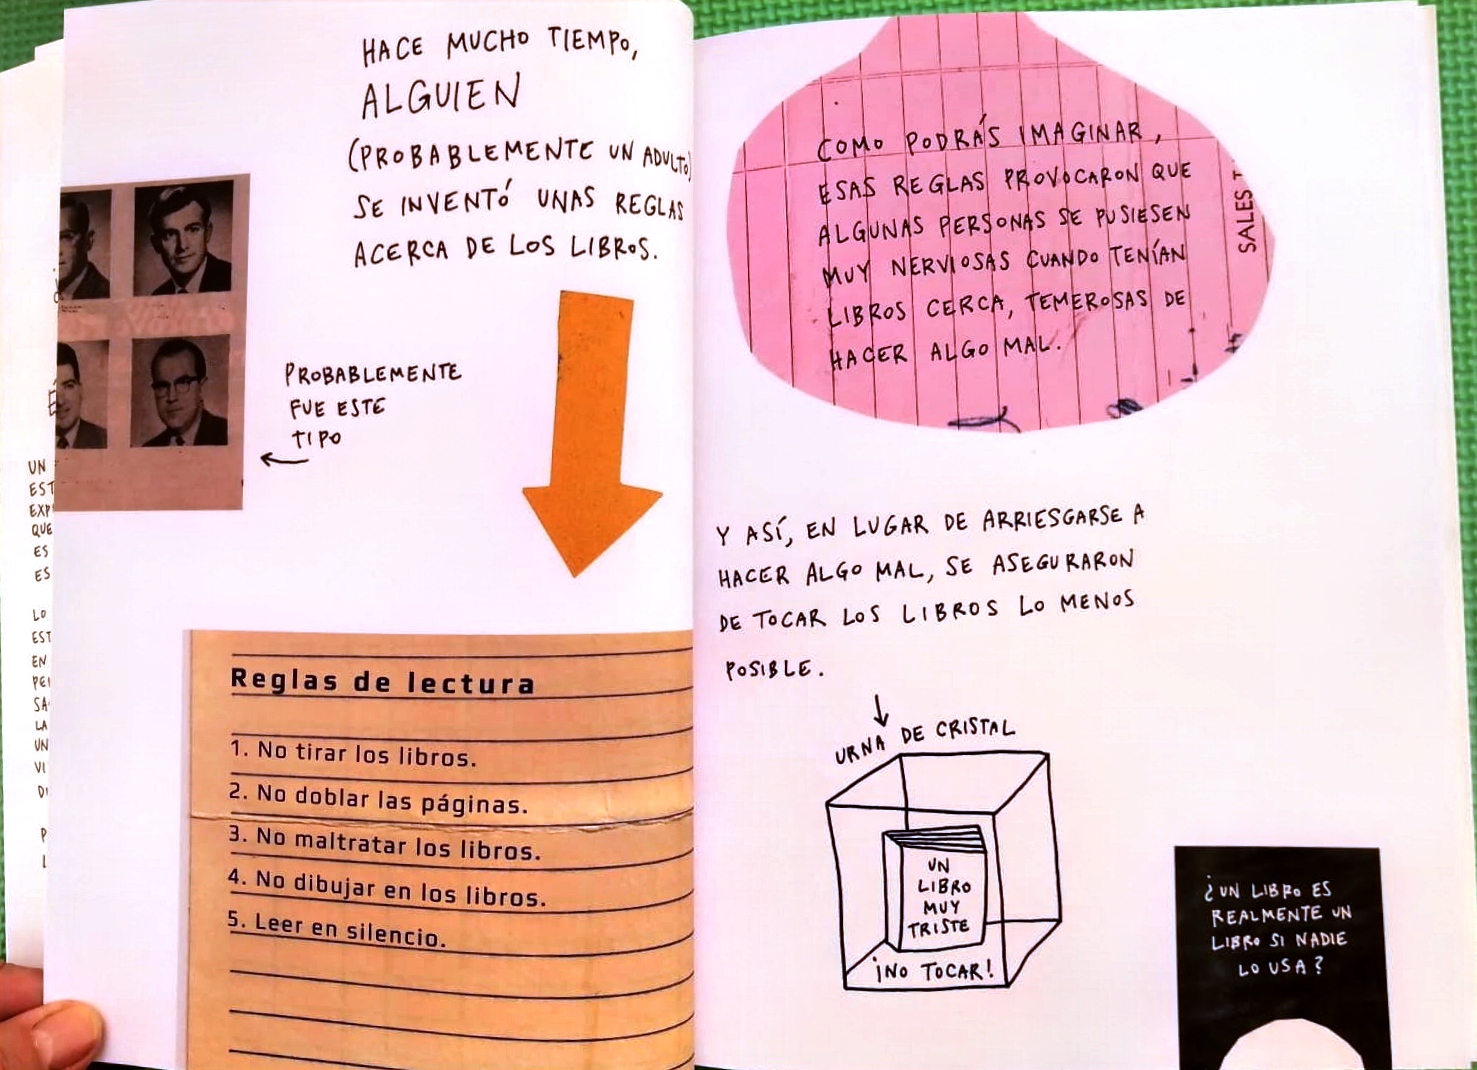 HACE MUCHO TIEMPO,
ALGUIEN
(PROBABLEMENTE UN ADULTO)
SE INVENTÓ UNAS REGLAS
ACERCA DE LOS LIBROS.
PROBABLEMENTE
FUE ESTE
TIPO
Reglas de lectura
1. No tirar los libros.
2. No doblar las páginas.
3. No maltratar los libros.
4. No dibujar en los libros.
5. Leer en silencio.
UN
ES
ES
LO
EN
LA
UN
COMO PODRÁS IMAGINAR,
ESAS REGLAS PROVOCARON QUE
ALGUNAS PERSONAS SE PUSIESEN
MUY NERVIOSAS CUANDO TENÍAN
LIBROS CERCA, TEMEROSAS DE
HACER ALGO MAL.
SALES T
Y ASÍ, EN LUGAR DE ARRIESGARSE A
HACER ALGO MAL, SE ASEGURARON
DE TOCAR LOS LIBROS LO MENOS
POSIBLE.
URNA DE CRISTAL
UN
LIBRO
MUY
TRISTE
¡NO TOCAR!
¿UN LIBRO ES
REALMENTE UN
LIBRO SI NADIE
LO USA?